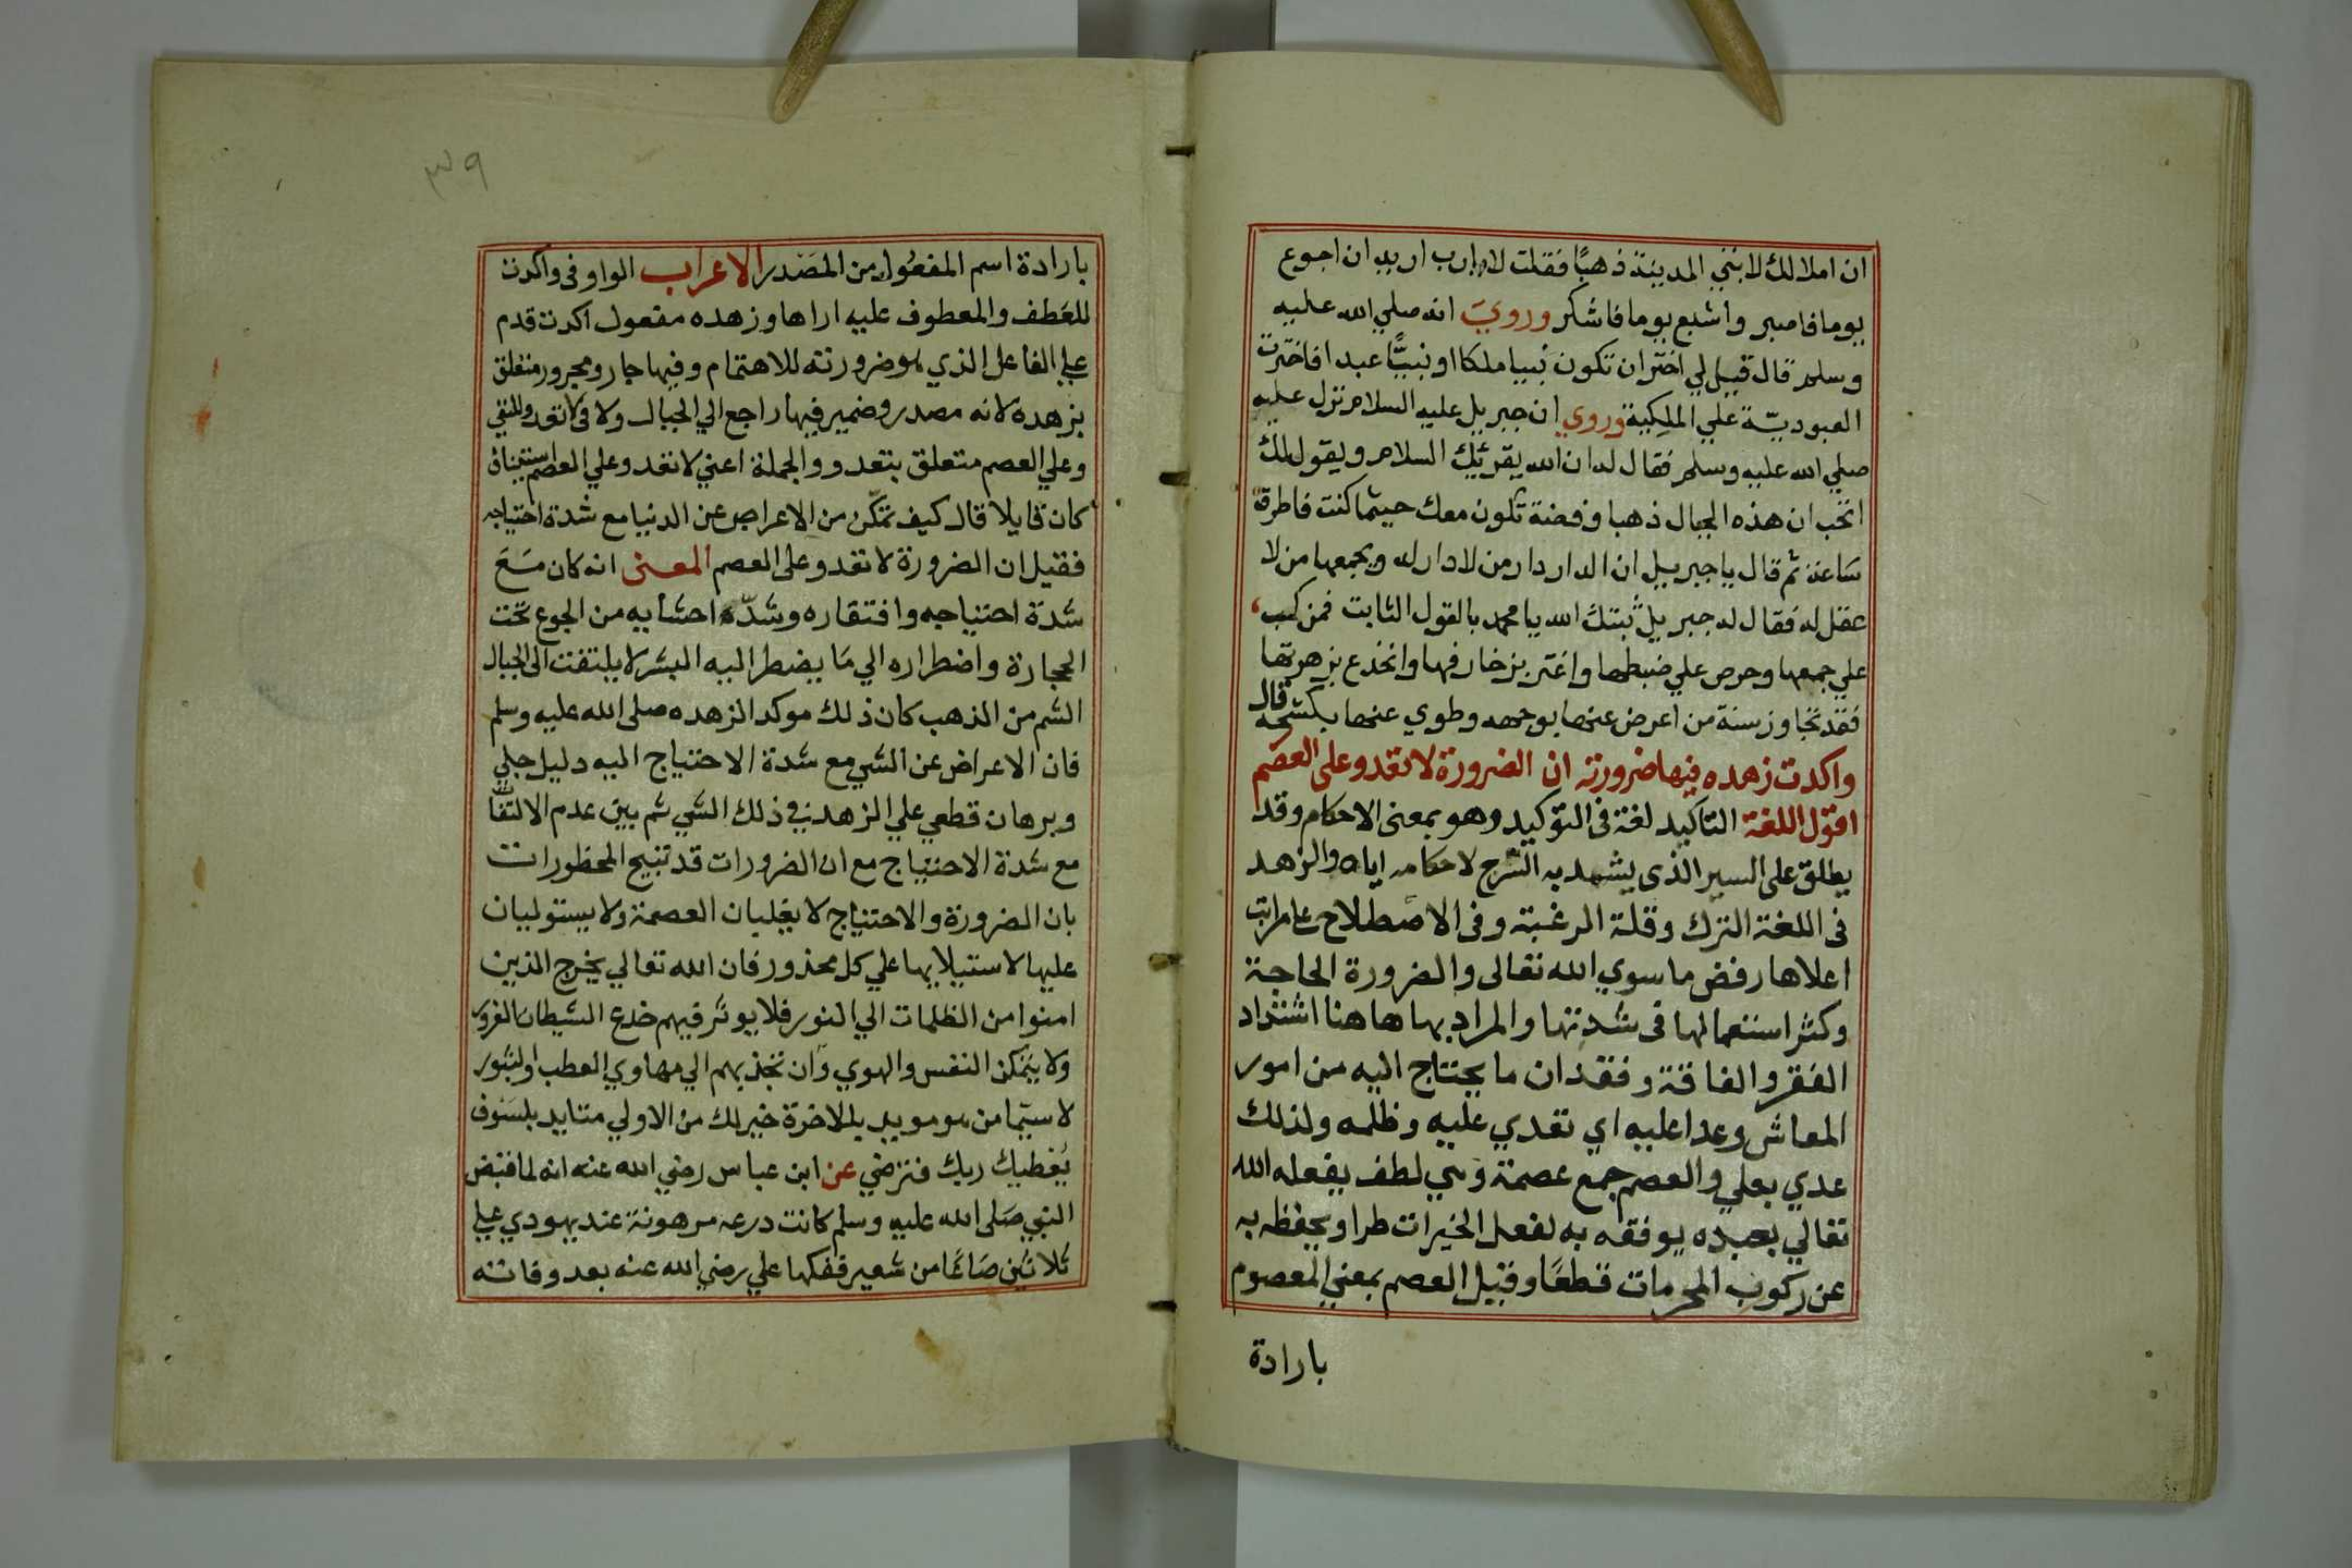 ان املا لك لابتي المدينة ذهبا فقلت لا يارب اريد ان اجوع
يوما فاصبر واشبع يوما فاشكر وروي انه صلي الله عليه
وسلم قال قيل لي اختر ان تكون نبيا ملكا او نبيًّا عبدا فاخترت
العبوديّة علي الملكية وروي ان جبريل عليه السلام نزل عليه
صلي الله عليه وسلم فقال له ان الله يقرئك السلام ويقول لك
اتحب ان هذه الجبال ذهبا وفضة تكون معك حيثما كنت فاطرق
ساعة ثم قال يا جبريل ان الدار دار من لا دار له ويجمعها من لا
عقل له فقال له جبريل ثبتك الله يا محمد بالقول الثابت فمن كب
علي جمعها وحرص علي ضبطها واغتر بزخارفها وانخدع بزهرتها
فقد تجاوز سنة من اعرض عنها بوجهه وطوي عنها بكشحه قال
واكدت زهده فيها ضرورته ان الضرورة لا تعدو على العصم
اقول اللغة التاكيد لغة فى التوكيد وهو بمعنى الاحكام وقد
يطلق على السير الذى يشهد به السرج لاحكامه اياه والزهد
فى اللغة الترك وقلة الرغبة وفى الاصطلاح على مراتب
اعلاها رفض ما سوي الله تعالى والضرورة الحاجة
وكثر استعمالها فى شدتها والمراد بها هاهنا اشتداد
الفقر والفاقة وفقدان ما يحتاج اليه من امور
المعاش وعدا عليه اي تعدي عليه وظلمه ولذلك
عدي بعلي والعصم جمع عصمة وهي لطف يفعله الله
تعالي بعبده يوفقه به لفعل الخيرات طرا ويحفظه به
عن ركوب المحرمات قطعًا وقيل العصم بمعني المعصوم
بارادة
٣٩
بارادة اسم المفعول من المصدر الاعراب الواو فى واكدت
للعطف والمعطوف عليه اراها وزهده مفعول اكدت قدم
علي الفاعل الذي هو ضرورته للاهتمام وفيها جار ومجرور متعلق
بزهده لانه مصدر وضمير فيها راجع الي الجبال ولا فى لا تعدو للنفي
وعلي العصم متعلق بتعدو والجملة اعني لا تعدو علي العصم استيناف
كان قايلا قال كيف تمكّن من الاعراض عن الدنيا مع شدة احتياجه
فقيل ان الضرورة لا تعدو على العصم المعنى انه كان مَعَ
شدة احتياجه وافتقاره وشدّه احشايه من الجوع تحت
الحجارة واضطراره الي ما يضطر اليه البشر لا يلتفت الى الجبال
الشم من الذهب كان ذلك موكدا لزهده صلى الله عليه وسلم
فان الاعراض عن الشي مع شدة الاحتياج اليه دليل جلي
وبرهان قطعي علي الزهد في ذلك الشي ثم بين عدم الالتفات
مع شدة الاحتياج مع ان الضرورات قد تبيح المحظورات
بان الضرورة والاحتياج لا يغلبان العصمة ولا يستوليان
عليها لاستيلايها علي كل محذور فان الله تعالي يخرج الذين
امنوا من الظلمات الي النور فلا يوثر فيهم خدع الشيطان الغرور
ولا يتمكن النفس والهوي وان تجذبهم الي مهاوي العطب والثبور
لا سيّما من هو مويد بللاخرة خير لك من الاولي متايد بلسوف
يُعطيك ربك فترضي عن ابن عباس رضي الله عنه انه لما قبض
النبي صَلى الله عليه وسلم كانت درعه مرهونة عند يهودي علي
ثلاثين صَاعًا من شعير ففكها علي رضي الله عنه بعد وفاته